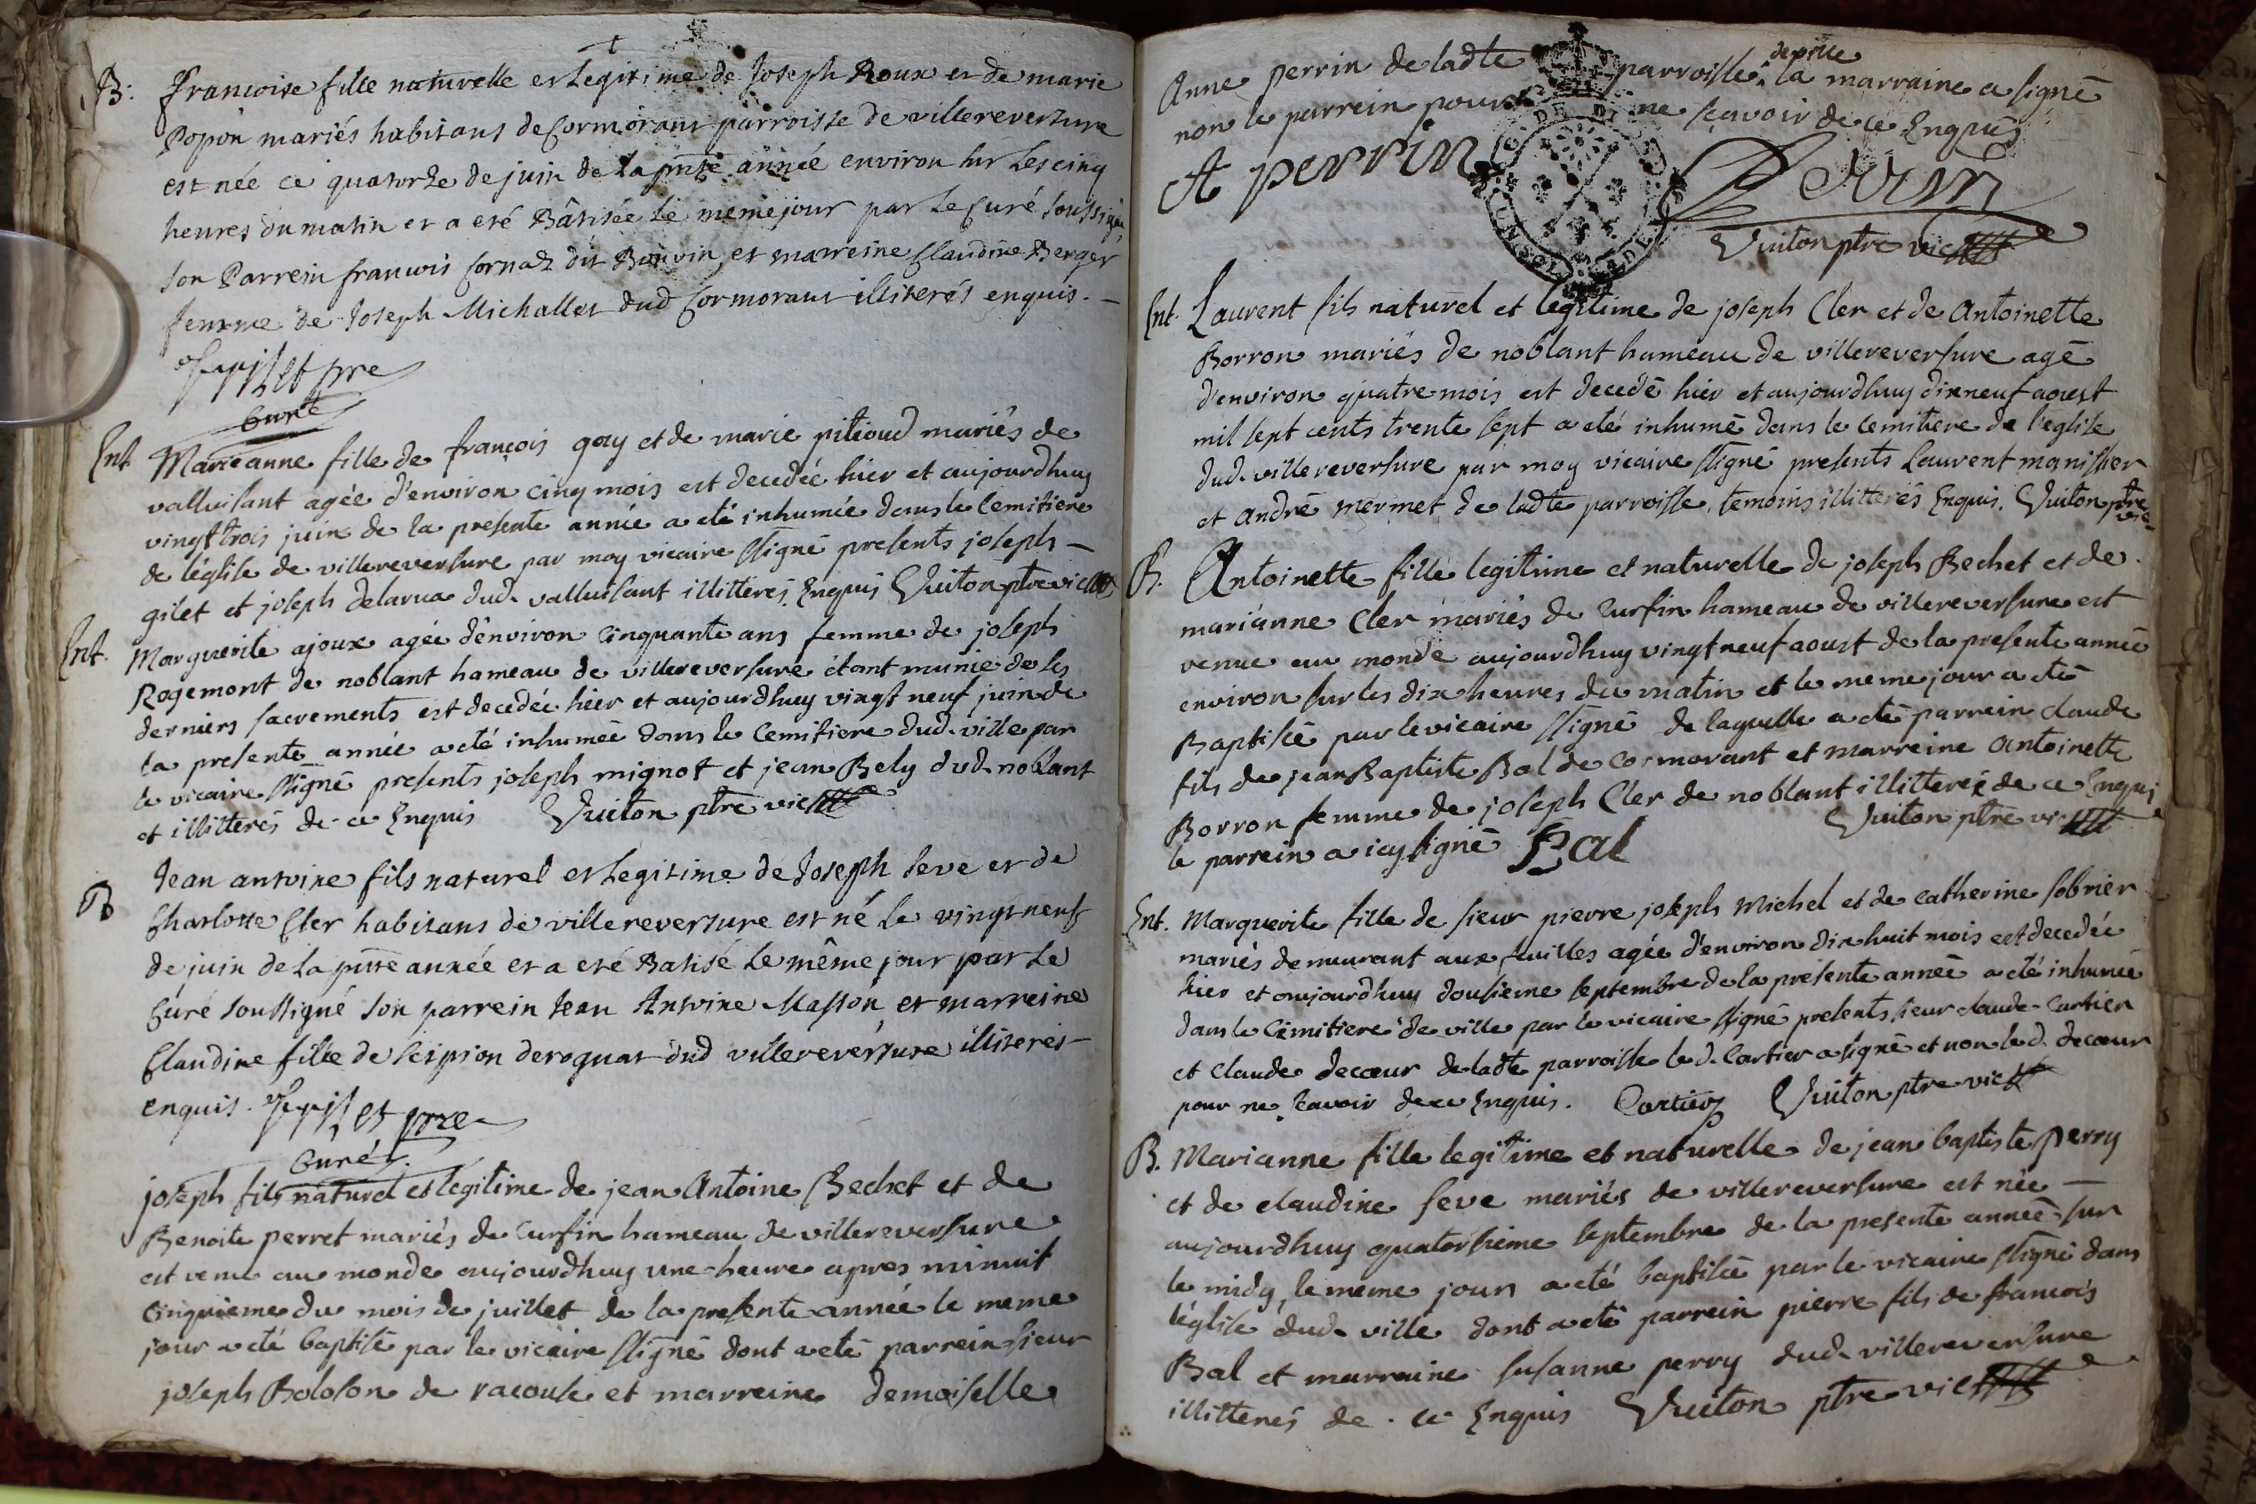 B: francoise fille naturelle et legitime de Joseph Roux et de marie
Popon mariés habitans de Cormorant parroisse de villereversure
est née ce quatorze de juin de la pnte année environ sur les cinq
heures du matin et a eté Bâtisée le meme jour par le Curé soussigné,
son Parrein francois Cornaz dit Bonvin, et marreine Claudine Berger
femme de Joseph Michallet dud Cormorant illiterés enquis. —
pre
Curé
Ent Marieanne fille de françois gay et de marie pitioud mariés de
valluisant agée d'environ cinq mois est decedée hier et aujourdhuy
vingt trois juin de la presente année a eté inhumée dans le Cemitiere
de l'église de villereversure par moy vicaire ssigné presents joseph —
gilet et joseph delarua dud. valluisant illitterés Enquis Vuiton ptre vic
Ent. Marguerite ajoux agée d'environ Cinquante ans femme de joseph
Rogemont de noblant hameau de villereversure étant munie de ses
derniers sacrements est decedée hier et aujourdhuy vingt neuf juin de
la presente année a eté inhumée dans le Cemitiere dud. ville par
le vicaire ssigné presents joseph mignot et jean Bely dud. noblant
et illitterés de ce Enquis Vuiton ptre vic
B Jean antoine fils naturel et Legitime de Joseph seve et de
Charlotte Cler habitans de villereversure est né Le vingt neuf
de juin de La pnte année et a eté Batisé Le même jour par Le
Curé soussigné son parrein Jean Antoine Masson et marreine
Claudine fille de scipion deroguat dud villereversure illiterés —
enquis. pre
Curé.
joseph fils naturel et légitime de jean Antoine Bechet et de
Benoite perret mariés de Curfin hameau de villereversure
est venu au monde aujourdhuy une heure apres minuit
Cinquieme du mois de juillet de la presente année le meme
jour a eté baptisé par le vicaire ssigné dont a eté parrein sieur
joseph Boloson de racouse et marreine demoiselle
Anne perrin de ladte parroisse, de ville la marraine a signé
non le parrein pour ne sçavoir de ce Enquis
A perrin Perrin
Vuiton ptre vic
Ent. Laurent fils naturel et legitime de joseph Cler et de Antoinette
Borron mariés de noblant hameau de villereversure agé
d'environ quatre mois est decedé hier et aujourdhuy dixneuf aoust
mil sept cents trente sept a eté inhumé dans le Cemitiere de l'eglise
dud. villereversure par moy vicaire ssigné presents Laurent manissier
et andré mermet de ladte parroisse, temoins illitterés Enquis. Vuiton ptre vic
B. Antoinette fille legitime et naturelle de joseph Bechet et de
marianne Cler mariés de Curfin hameau de villereversure est
venue au monde aujourdhuy vingt neuf aoust de la presente année
environ sur les dix heures du matin et le meme jour a eté
Baptisée par le vicaire ssigné de laquelle a eté parrein claude
fils de jean Baptiste Bal de Cormorant et marreine Antoinette
Borron femme de joseph Cler de noblant illitterés de ce Enquis
le parrein a icy signé Bal Vuiton ptre vic
Ent. Marguerite fille de sieur pierre joseph Michel et de Catherine sobrier
mariés demeurant aux feuilles agée d'environ dix huit mois est decedée
hier et aujourdhuy dousieme septembre de la présente année a eté inhumée
dans le Cemitiere de ville par le vicaire ssigné presents sieur claude Cartier
et Claude decœur de ladte parroisse le d. Cartier a signé et non le d. decœur
pour ne sçavoir de ce Enquis. Cartier Vuiton ptre vic
B. Marianne fille legitime et naturelle de jean baptiste perry
et de claudine seve mariés de villereversure est née —
aujourdhuy quatorsieme septembre de la presente année sur
le midy, le meme jour a eté baptisée par le vicaire ssigné dans
l'église dud. ville dont a eté parrein pierre fils de francois
Bal et marraine susanne perry dud. villereversure
illitterés de ce Enquis Vuiton ptre vic